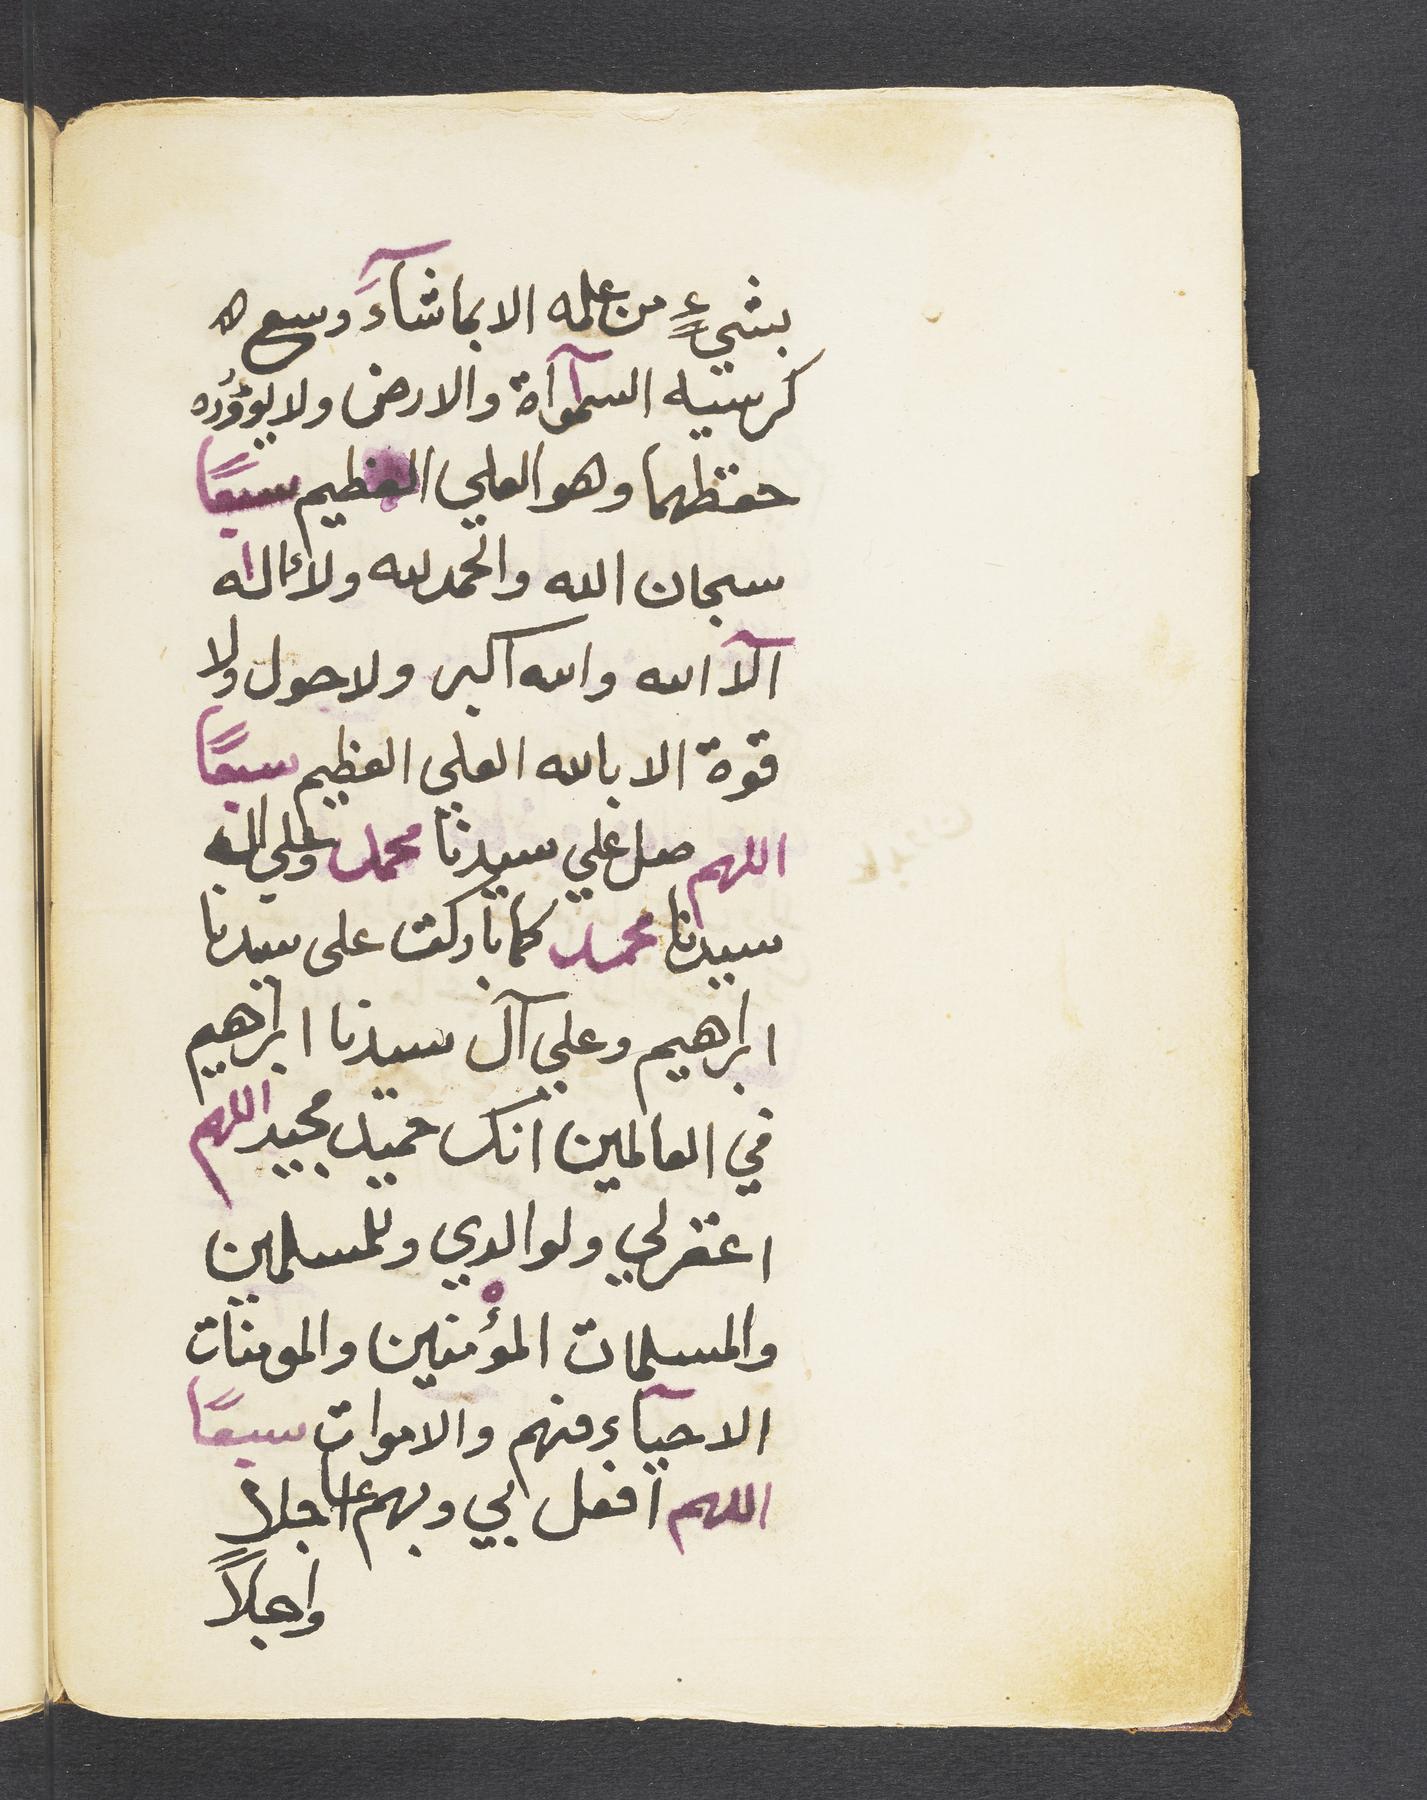 بشيءٍ من علمه الا بما شآءَ وسع
كرسيه السمٰوآاة والارض ولا يوؤُده
حفظهما وهو العلي العظيم سبعًا
سبحان الله والحمد لله ولا اله
الآ الله والله اكبر ولا حول ولا
قوة الا بالله العلي العظيم سبعًا
اللهم صل علي سيدنا محمد وعلي ال
سيدنا محمد كما باركت على سيدنا
ابراهيم وعلي آل سيدنا ابراهيم
في العالمين انك حميد مجيد اللهم
اغفر لي ولوالدي وللمسلمين
والمسلمات المؤمنين والمومنات
الاحيآء منهم والاموات سبعًا
اللهم افعل بي وبهم عاجلا
واجلاً